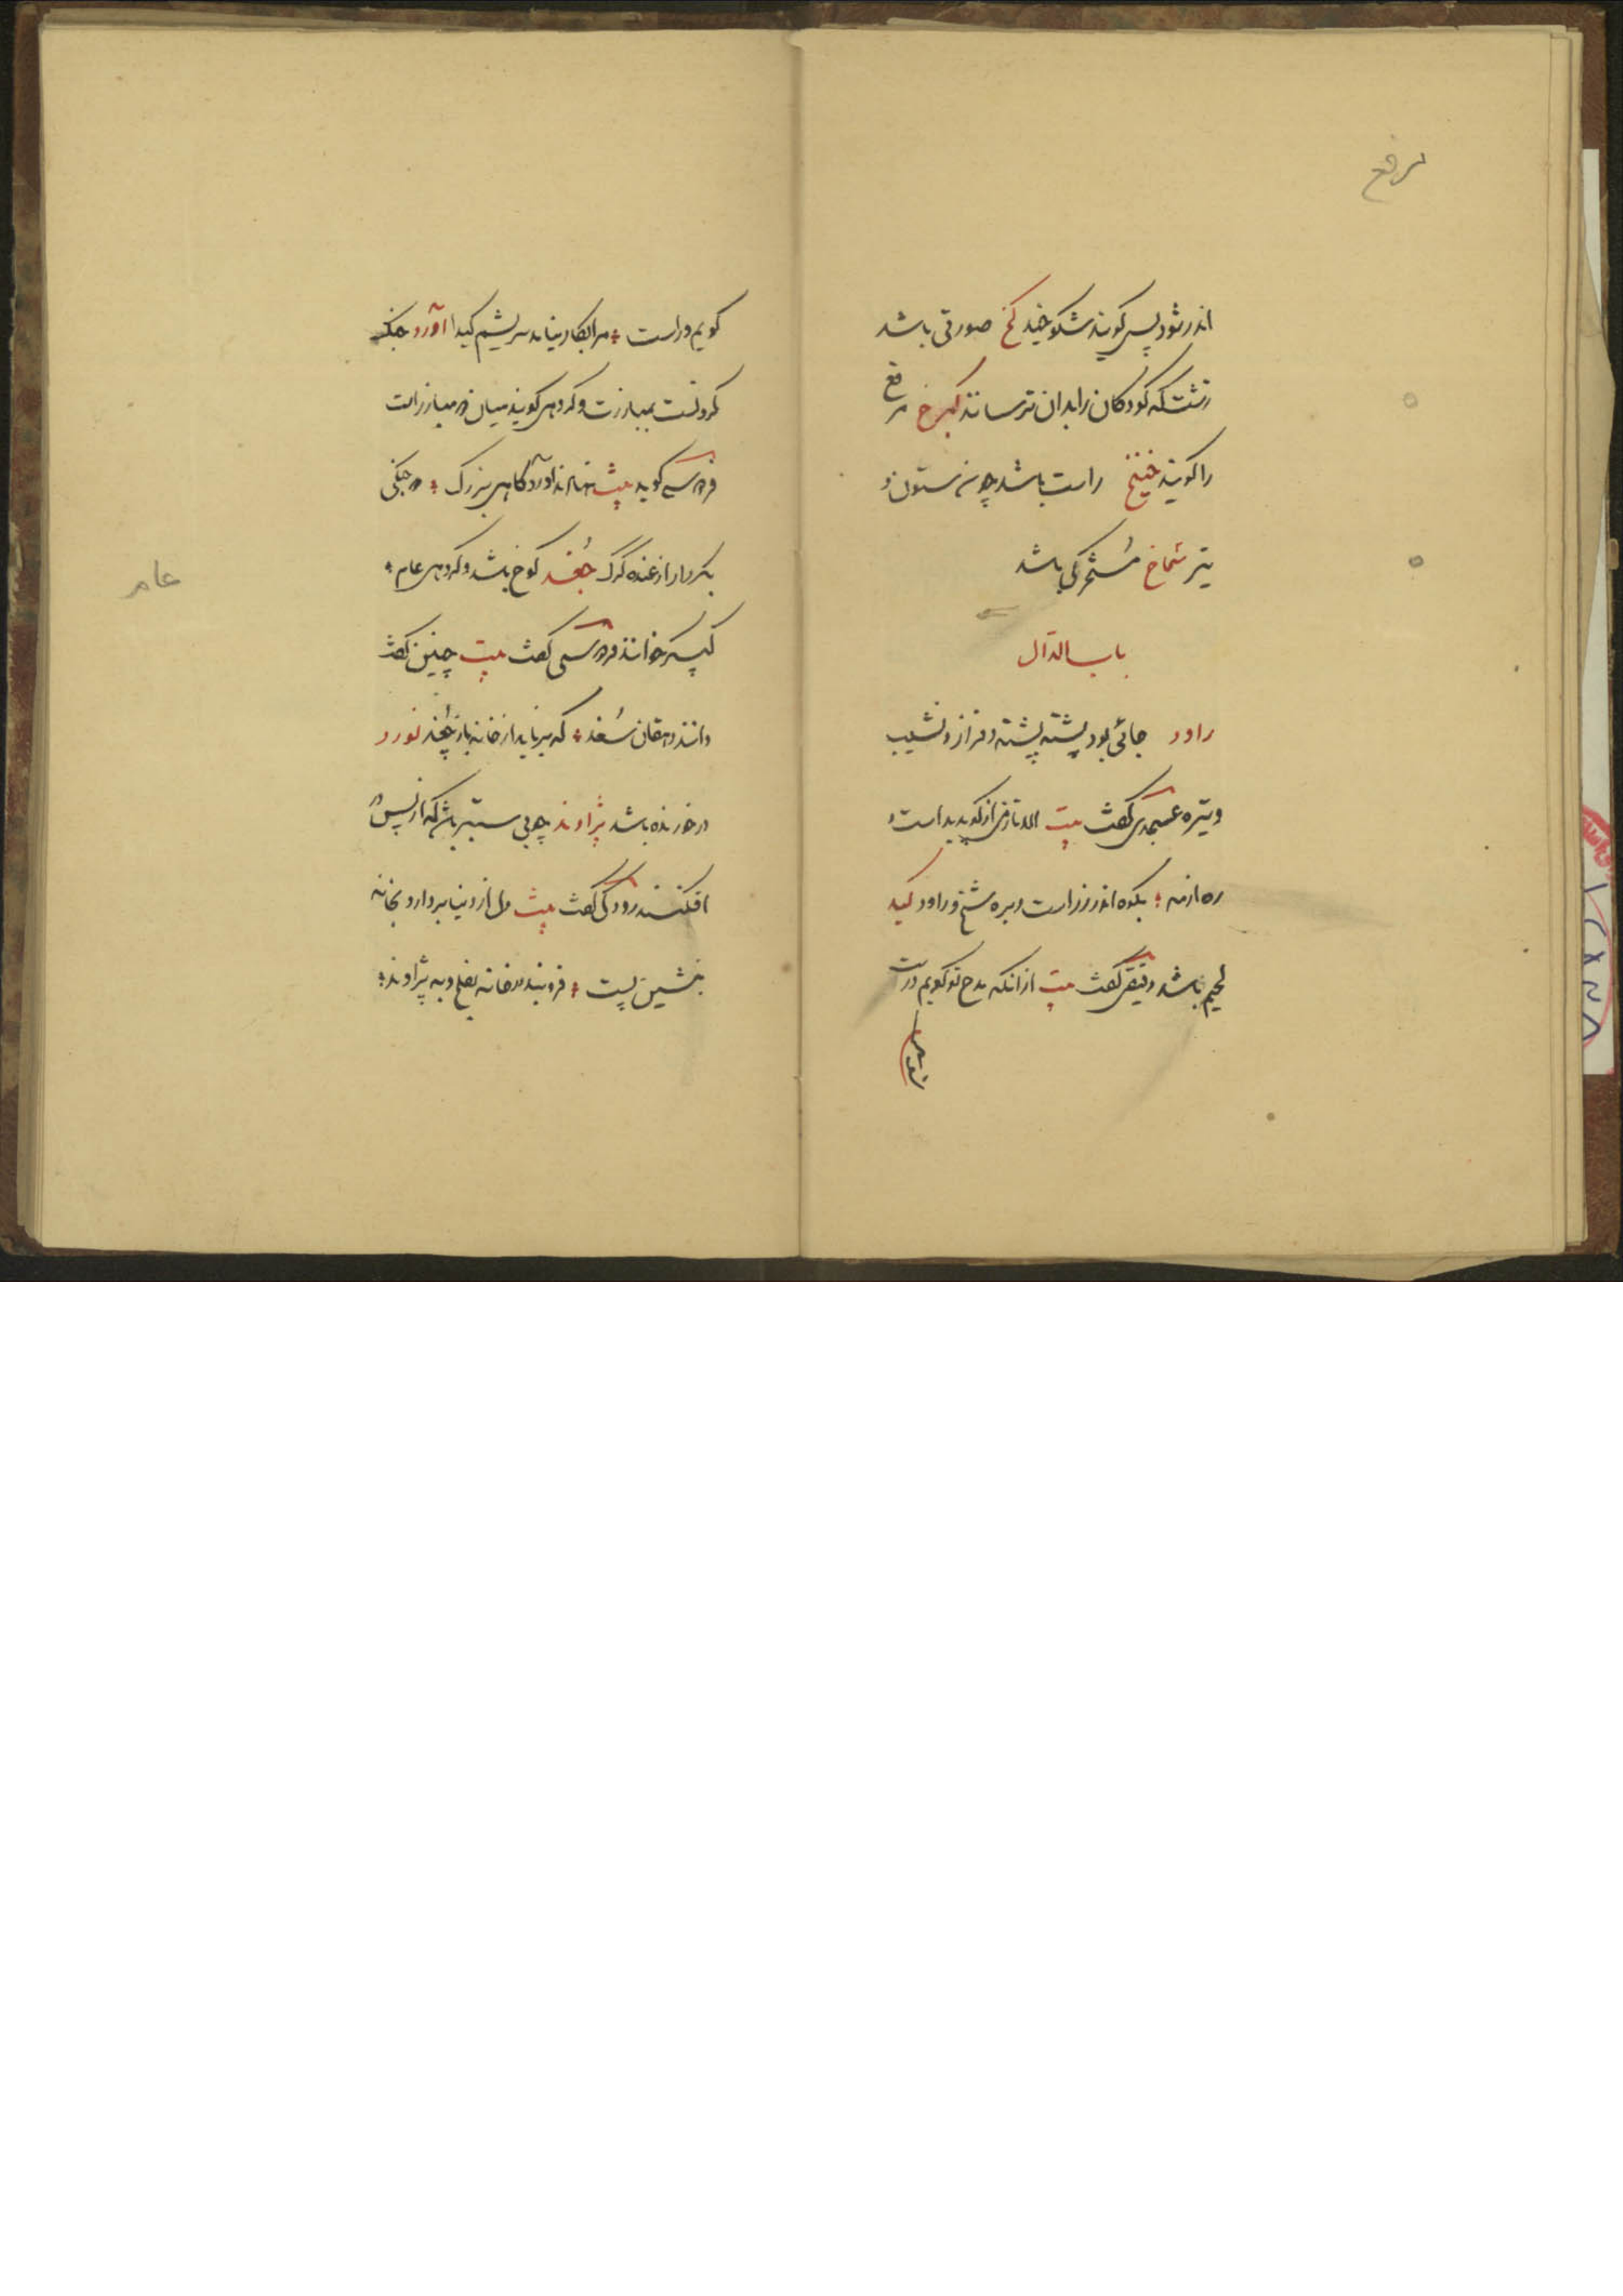 اندر شود پس گویند شکوخید کخ صورتی باشد
زشت که کودکان را بدان ترسانند کبرخ مرقع
را گویند خنبخ راست باشد چون ستون و
تیر شماخ مشترکی باشد
باب الدال
راود جائی بود پشته پشته و فراز و نشیب
و تیره عسجدی گفت بیت الا تا زمی از کوه پدید است و
ره از مه بکوه اندر زراست و بره شخ و راود کبد
لحیم باشد دقیقی گفت بیت از انکه مدح تو گویم درست
گویم و راست مرا بکار نیاید سریشم کبدا آورد جنگ
کردنست بمبارزت و گروهی گویند میان دو مبارز است
فردوسی گوید بیت نماند آوردگاهی بزرگ دو جنگی
بکردار ارغنده گرگ جغد کوخ باشد و گروهی عام
کپسر خوانند فردوسی گفت بیت چنین گفت
داننده دهقان سغد که برناید از خانه باز جغد نورد
درخورنده باشد پژاوند چوبی ستبر باشد که از پس در
افکنند رودکی گفت بیت دل از دنیا بردار و بخانه
بنشین پست فروبند در خانه بفلج و به پژاوند
عام